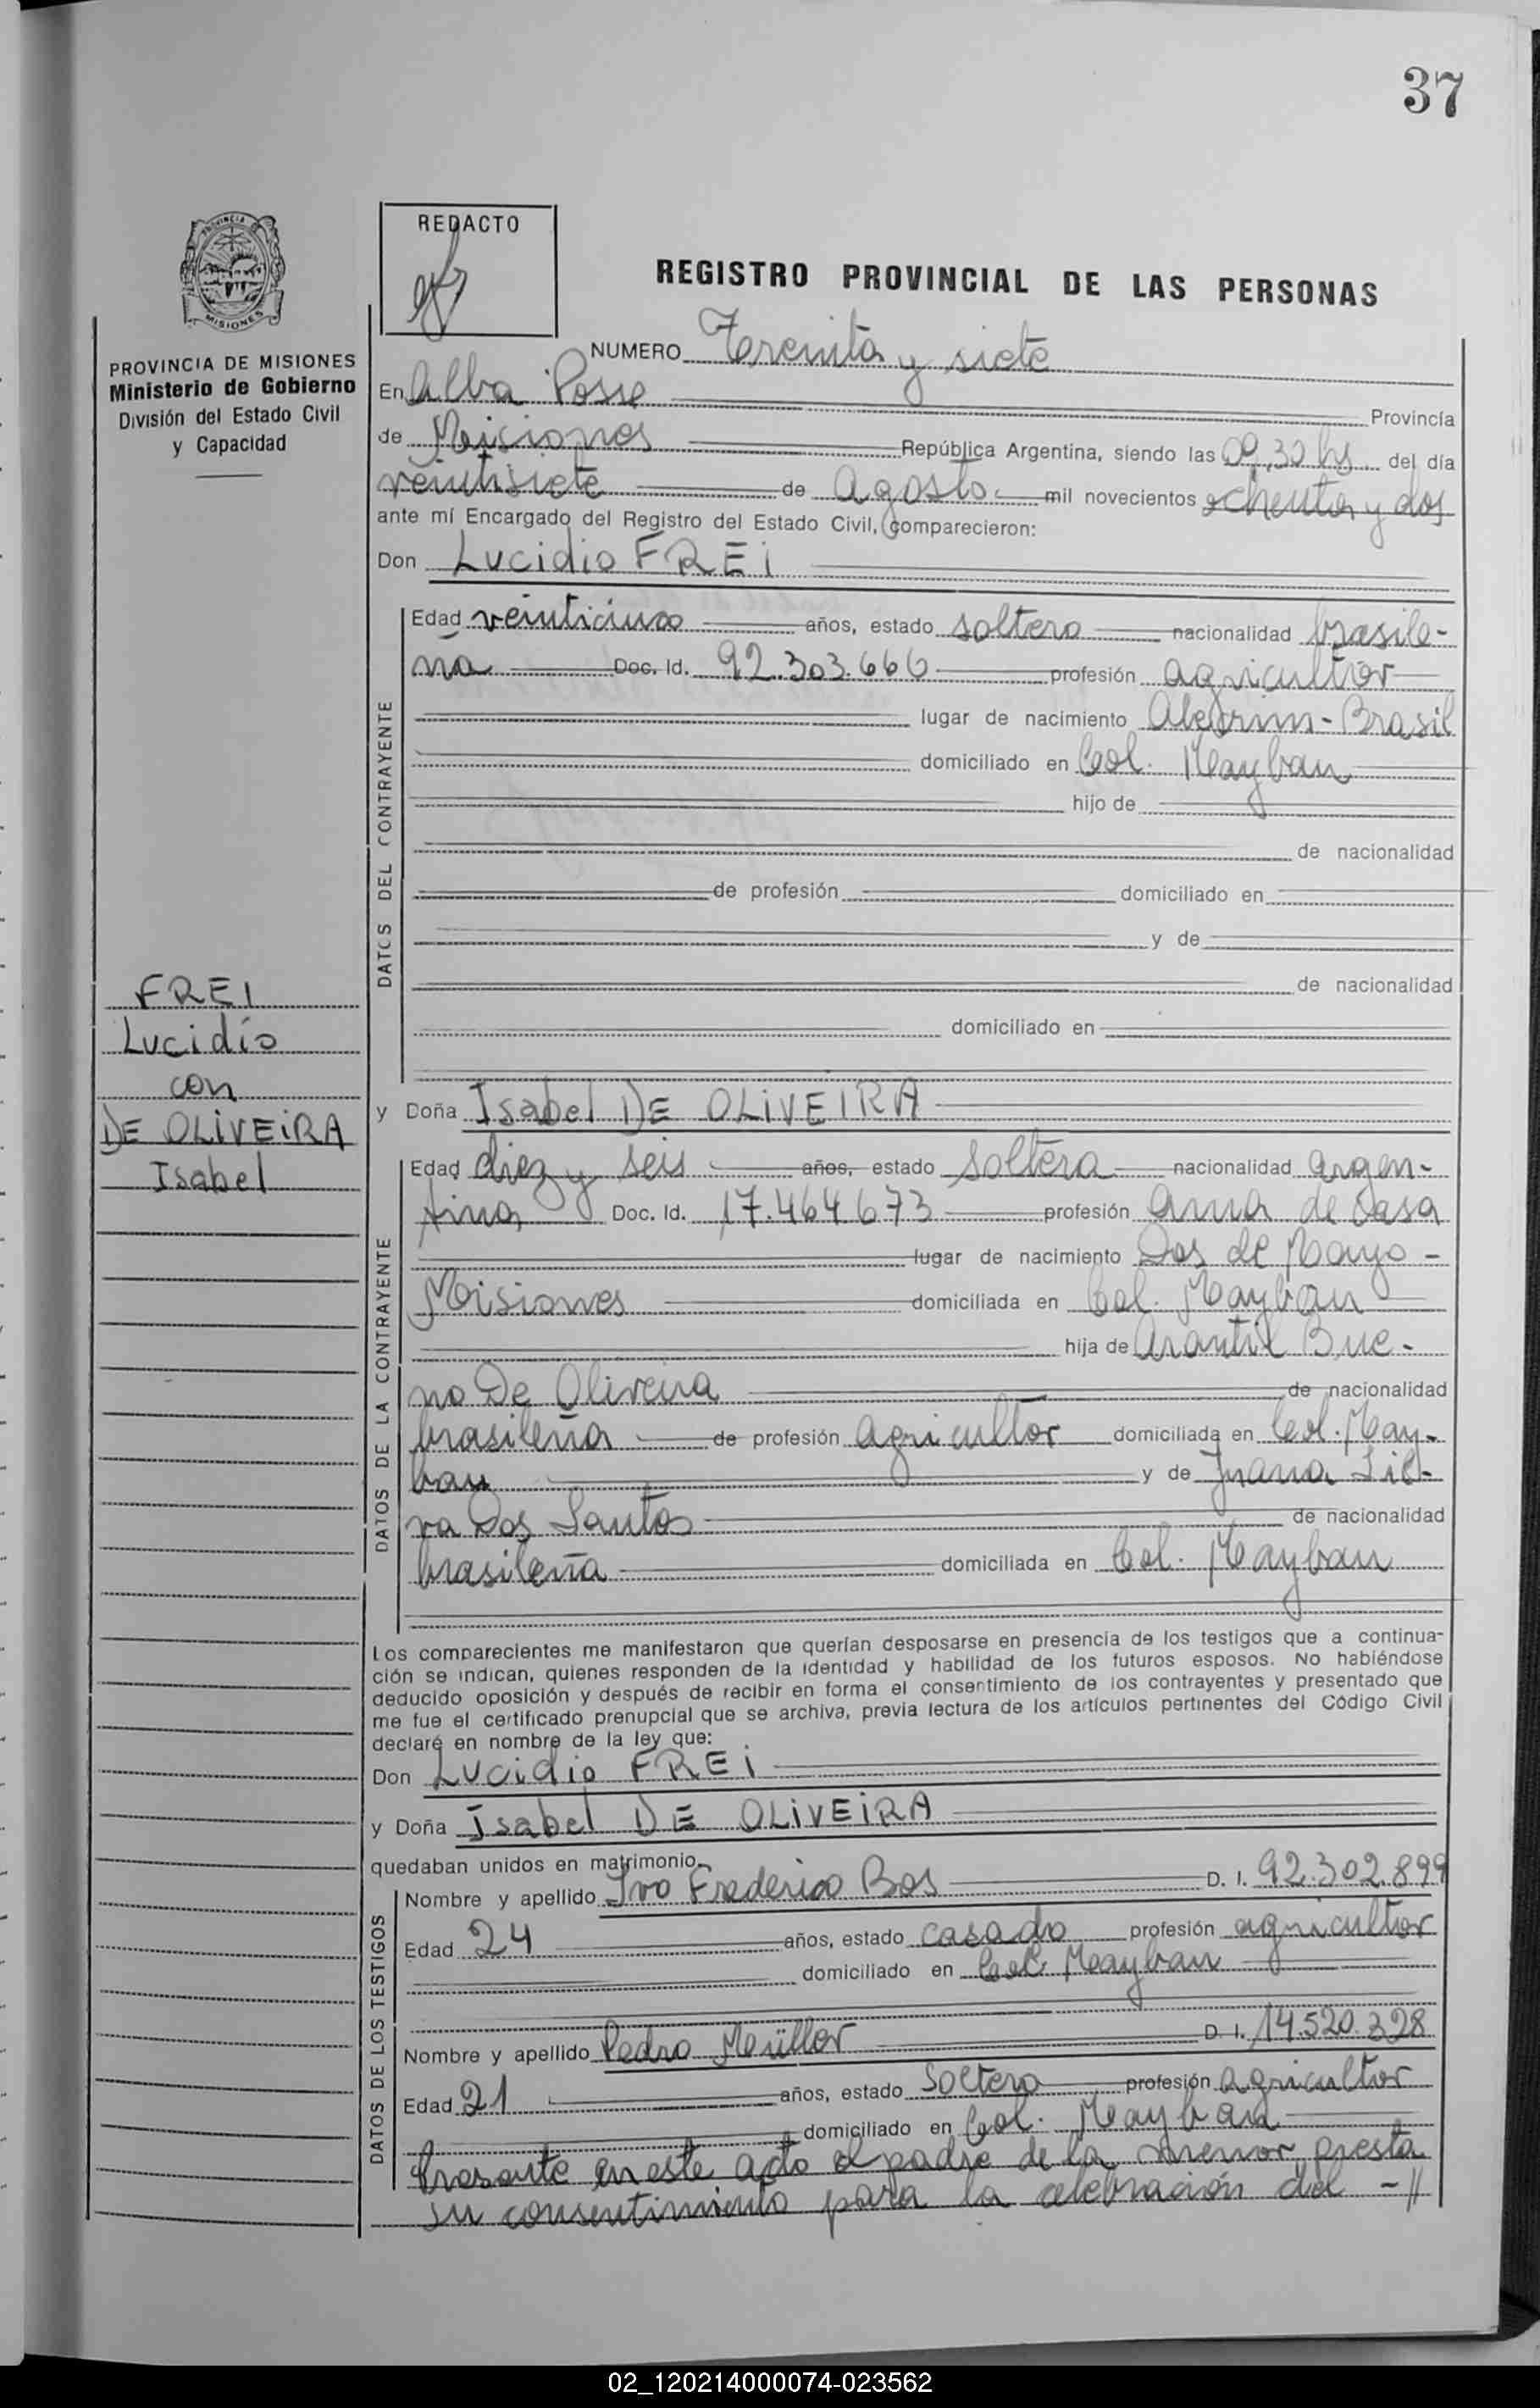 37
PROVINCIA DE
MISIONES
PROVINCIA DE MISIONES
Ministerio de Gobierno
División del Estado Civil
y Capacidad
REDACTO
REGISTRO PROVINCIAL DE LAS PERSONAS
NUMERO Treinta y siete
En Alba Posse Provincia
de Misiones República Argentina, siendo las 09,30 hs. del día
veintisiete de agosto mil novecientos ochenta y dos
ante mí Encargado del Registro del Estado Civil, comparecieron:
Don Lucidio FREI
DATOS DEL CONTRAYENTE
Edad veinticinco años, estado soltero nacionalidad brasile-
ña Doc. Id. 92.303.666 profesión agricultor
lugar de nacimiento Alegrim - Brasil
domiciliado en Col. Mayban
hijo de
de nacionalidad
de profesión domiciliado en
y de
de nacionalidad
domiciliado en
FREI
Lucidio
con
DE OLIVEIRA
Isabel
y Doña Isabel DE OLIVEIRA
DATOS DE LA CONTRAYENTE
Edad diez y seis años, estado soltera nacionalidad argen-
tina Doc. Id. 17.464.673 profesión ama de casa
lugar de nacimiento Dos de Mayo -
Misiones domiciliada en Col. Mayban
hija de Arantil Bue-
no De Oliveira de nacionalidad
brasileña de profesión agricultor domiciliada en Col. May-
ban y de Juana Sil-
va Dos Santos de nacionalidad
brasileña domiciliada en Col. Mayban
Los comparecientes me manifestaron que querían desposarse en presencia de los testigos que a continua-
ción se indican, quienes responden de la identidad y habilidad de los futuros esposos. No habiéndose
deducido oposición y después de recibir en forma el consentimiento de los contrayentes y presentado que
me fue el certificado prenupcial que se archiva, previa lectura de los artículos pertinentes del Código Civil
declaré en nombre de la ley que:
Don Lucidio FREI
y Doña Isabel DE OLIVEIRA
quedaban unidos en matrimonio.
DATOS DE LOS TESTIGOS
Nombre y apellido Ivo Frederico Bos D. I. 92.302.899
Edad 24 años, estado casado profesión agricultor
domiciliado en Col. Mayban
Nombre y apellido Pedro Müller D. I. 14.520.328
Edad 21 años, estado soltero profesión agricultor
domiciliado en Col. Mayban
Presente en este acto el padre de la menor, presta
su consentimiento para la celebración del -//
02_120214000074-023562